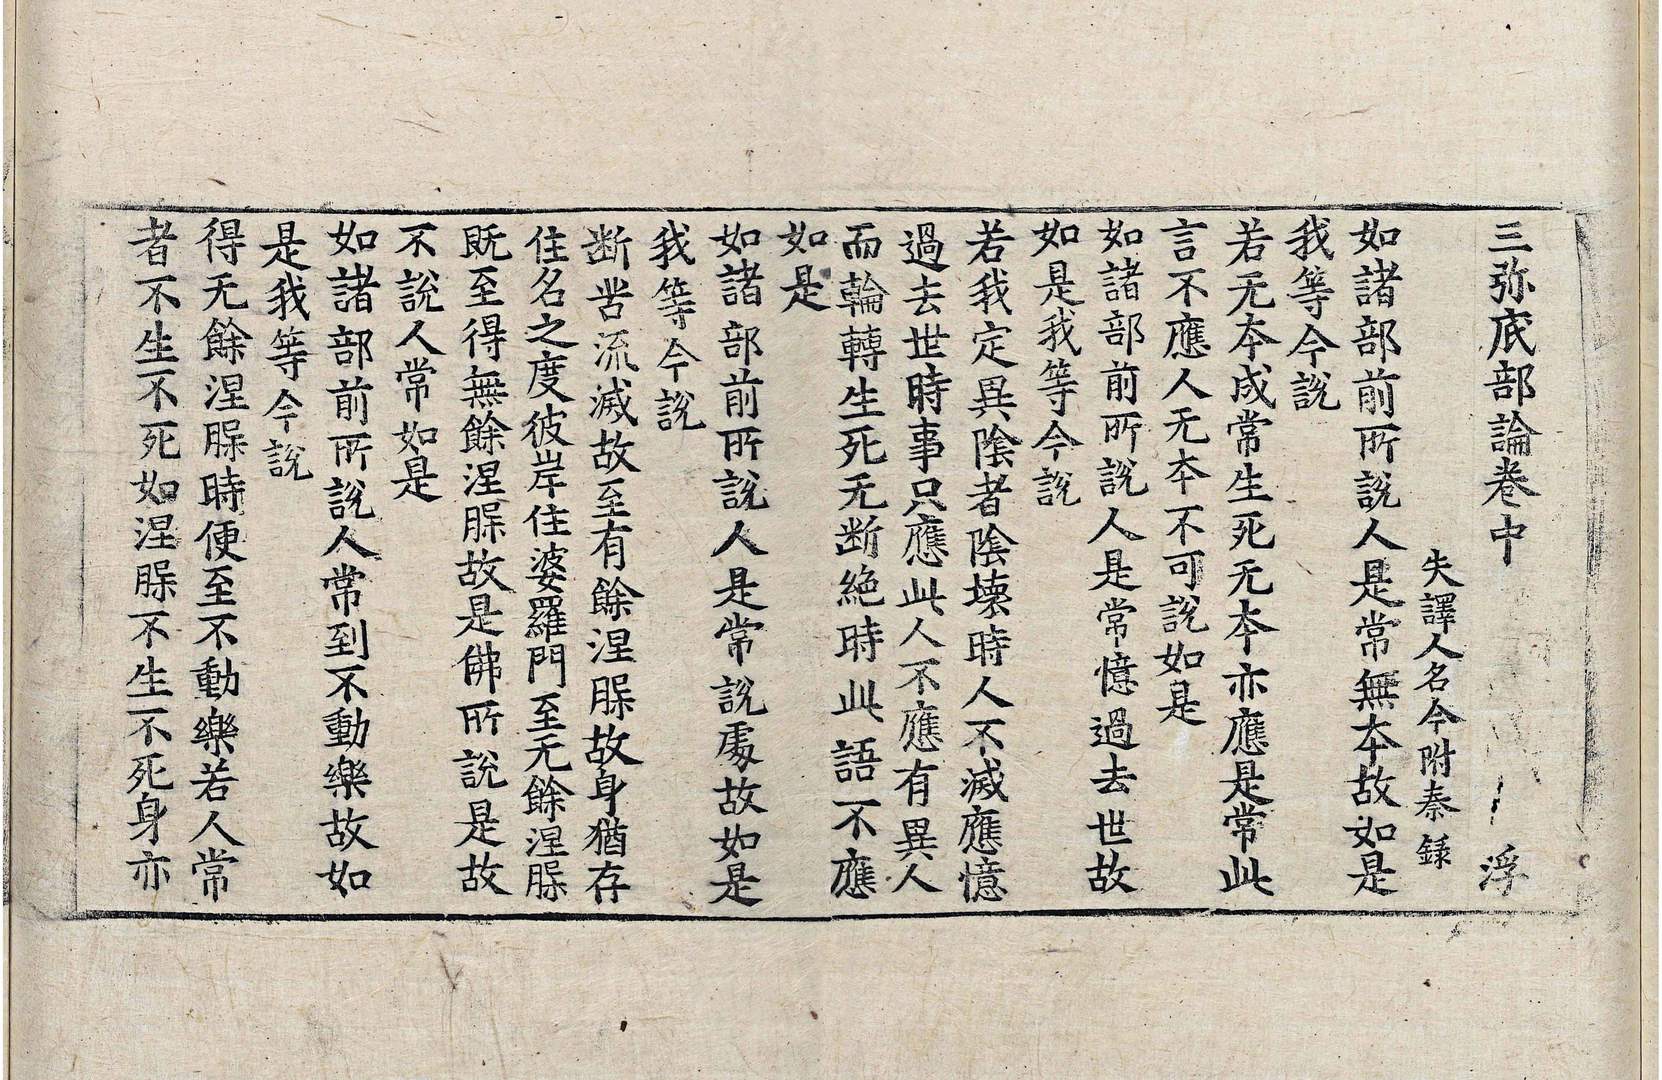 三弥底部論卷中 浮
失譯人名今附秦録
如諸部前所說人是常無本故如是
我等今說
若无本成常生死无本亦應是常此
言不應人无本不可說如是
如諸部前所說人是常憶過去世故
如是我等今說
若我定異陰者陰壞時人不滅應憶
過去世時事只應此人不應有異人
而輪轉生死无断絶時此語不應
如是
如諸部前所說人是常說處故如是
我等今說
断苦流滅故至有餘涅槃故身猶存
住名之度彼岸住婆羅門至无餘涅槃
既至得無餘涅槃故是佛所說是故
不說人常如是
如諸部前所說人常到不動樂故如
是我等今說
得无餘涅槃時便至不動樂若人常
者不生不死如涅槃不生不死身亦